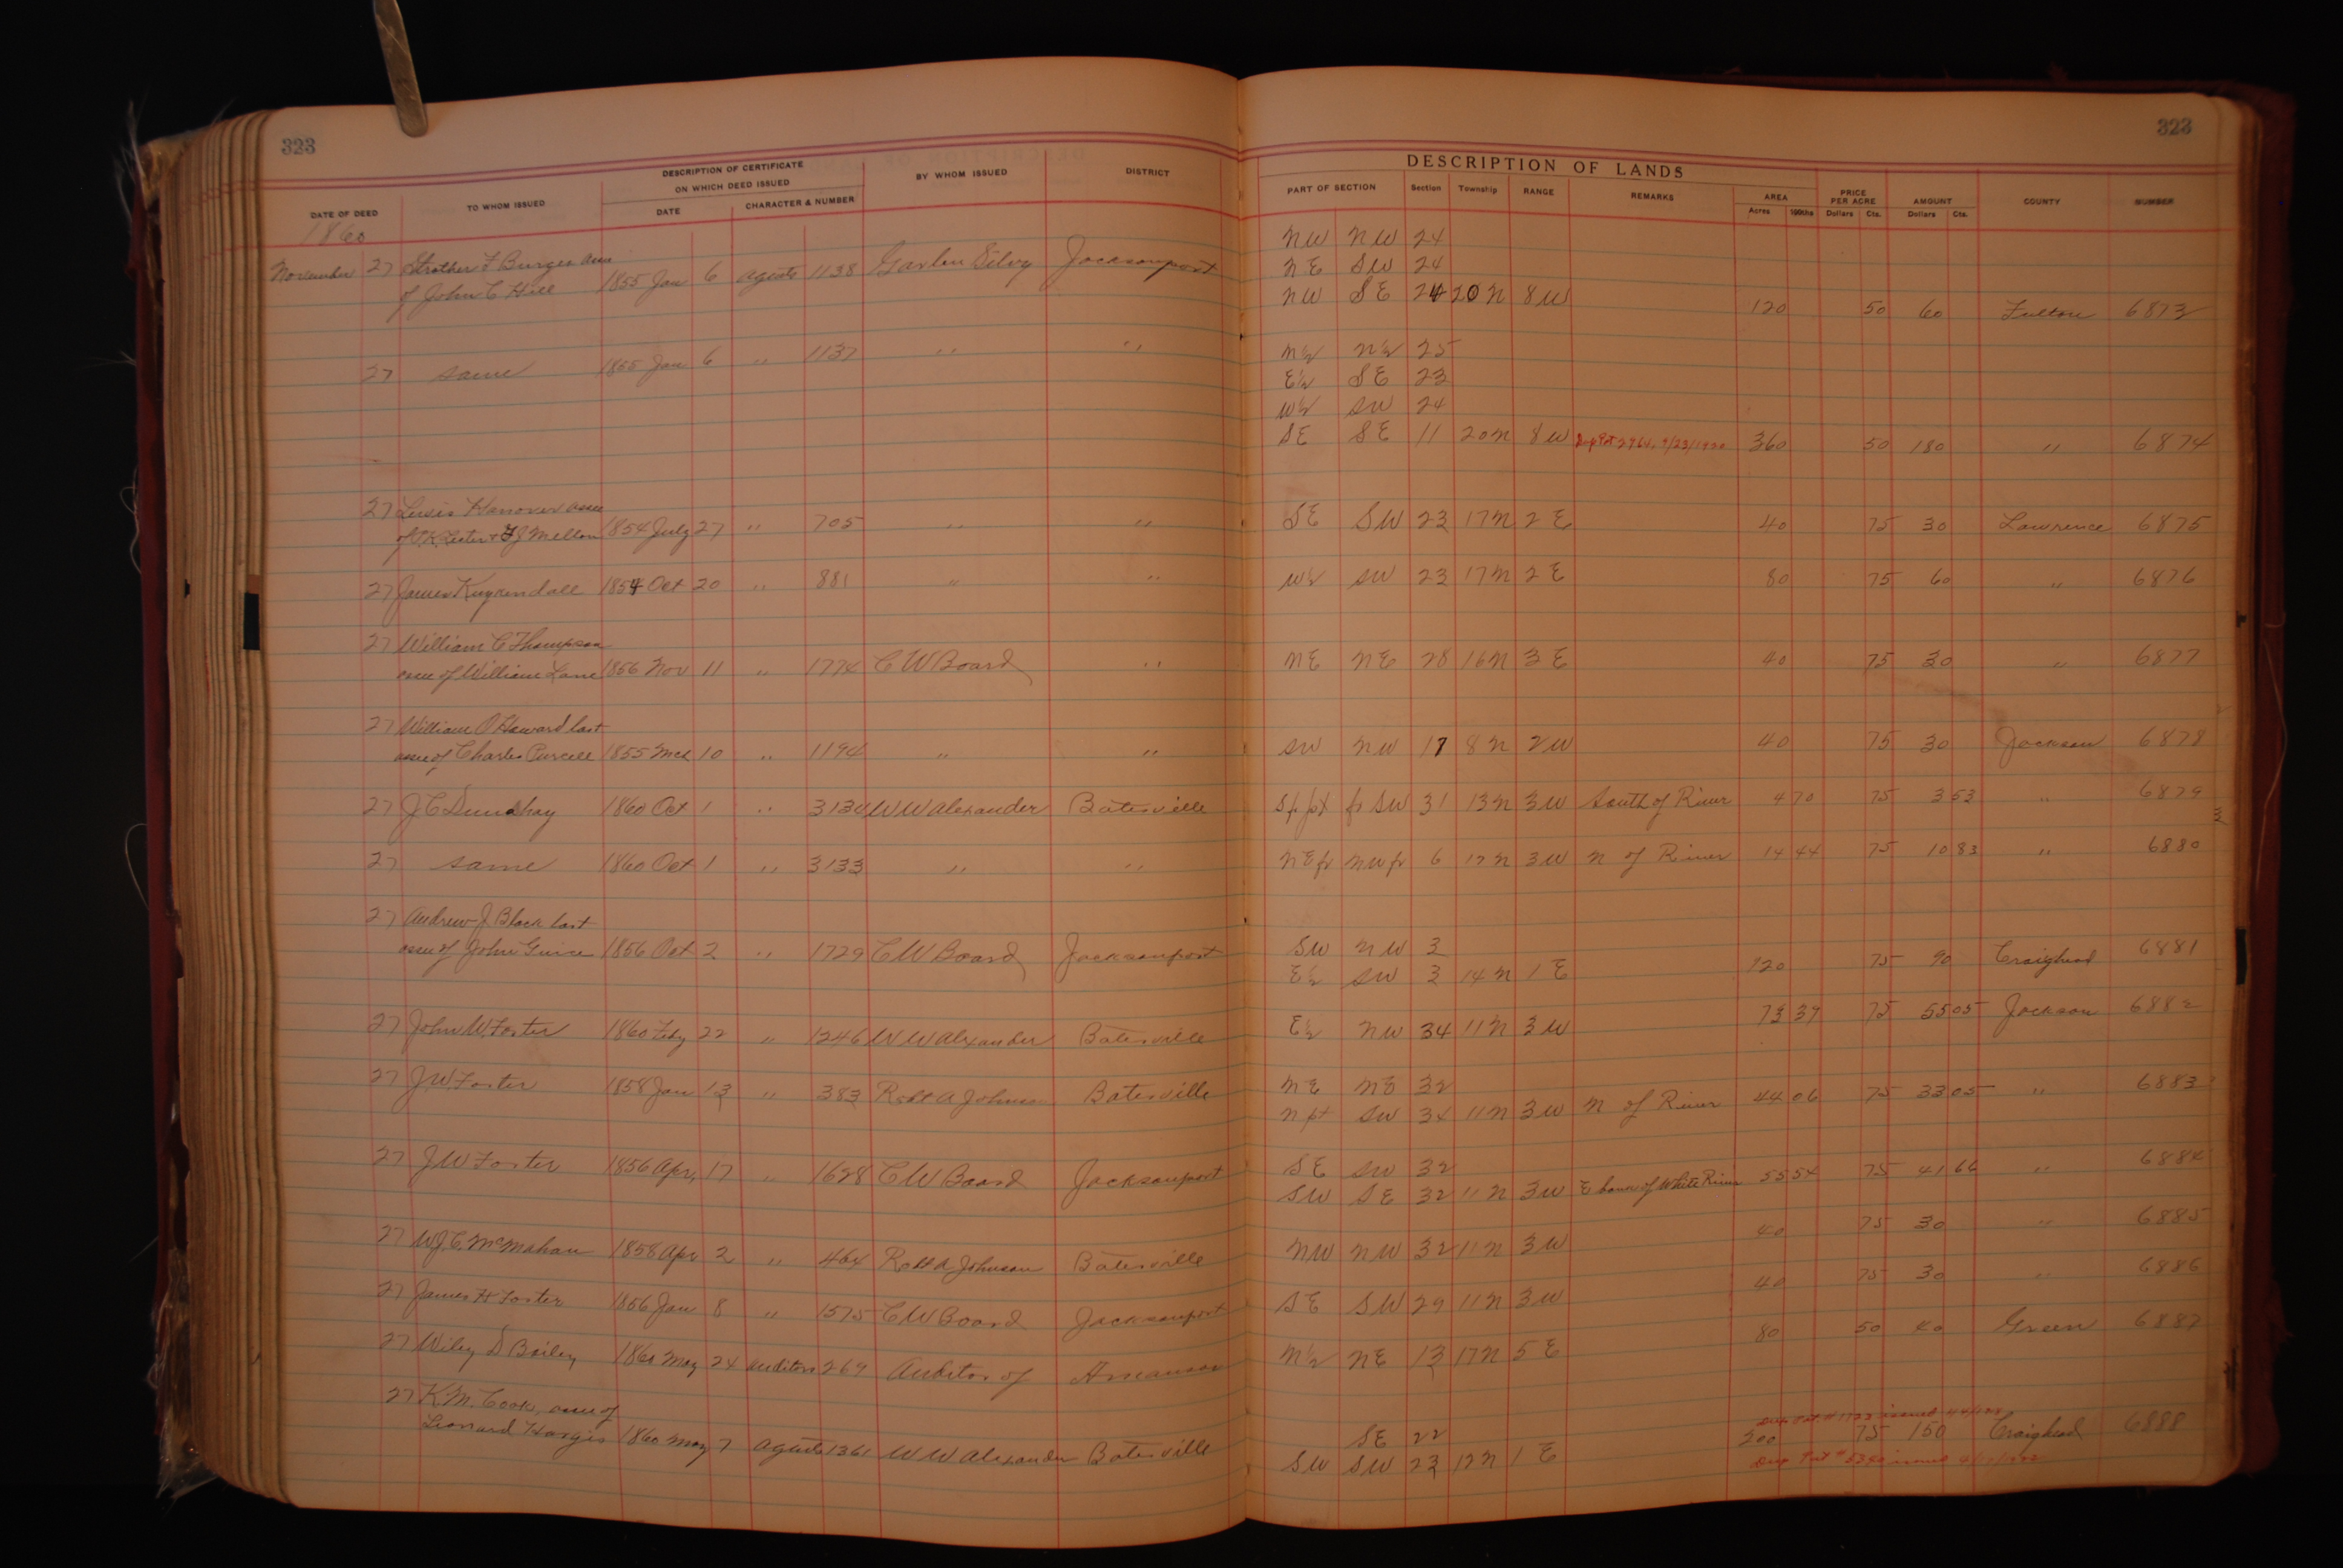 323
323
DESCRIPTION OF CERTIFICATE
ON WHICH DEED ISSUED
BY WHOM ISSUED
DISTRICT
DESCRIPTION OF LANDS
DATE OF DEED
TO WHOM ISSUED
DATE
CHARACTER & NUMBER
PART OF SECTION Section Township RANGE REMARKS AREA PRICE PER ACRE AMOUNT COUNTY NUMBER
Acres 100ths Dollars Cts. Dollars Cts.
1860
NW NW 24
November 27 Strother F Burges assee
NE SW 24
of John C Hill 1855 Jan 6 agents 1138 Jacksonport
NW SE 24 20 N 8 W 120 50 60 Fulton 6873
27 same 1855 Jan 6 " 1137 " "
N½ N½ 25
E½ SE 23
W½ SW 24
SE SE 11 20 N 8 W 9/23/1920 360 50 180 " 6874
27 Lewis Hanover assee
of K. Lester & J Mellon 1854 July 27 " 705 " " SE SW 23 17 N 2 E 40 75 30 Lawrence 6875
27 James Kuykendall 1854 Oct 20 " 881 " " W½ SW 23 17 N 2 E 80 75 60 " 6876
27 William C Thompson
assee of William Lane 1856 Nov 11 " 1774 C W Board " NE NE 28 16 N 3 E 40 75 30 " 6877
27 William O Haward last
assee of Charles Purcell 1855 Mch 10 " 1194 " " SW NW 17 8 N 2 W 40 75 30 Jackson 6878
27 J C 1860 Oct 1 " 3134 W W Alexander Batesville S fr pt fr SW 31 13 N 3 W South of River 4 70 75 3 53 " 6879
27 same 1860 Oct 1 " 3133 " " NE fr NW fr 6 12 N 3 W N of River 14 44 75 10 83 " 6880
27 Andrew J Black last
assee of John Guice 1856 Oct 2 " 1729 C W Board Jacksonport SW NW 3
E½ SW 3 14 N 1 E 120 75 90 Craighead 6881
27 John W. Foster 1860 Feby 22 " 1246 W W Alexander Batesville E½ NW 34 11 N 3 W 73 39 75 55 05 Jackson 6882
27 J W Foster 1858 Jan 13 " 383 Robt A Johnson Batesville NE NE 32
N pt SW 34 11 N 3 W N of River 44 06 75 33 05 " 6883
27 J W Foster 1856 Apr. 17 " 1628 C W Board Jacksonport SE SW 32
SW SE 32 11 N 3 W E bank of White River 55 54 75 41 66 " 6884
27 W. J. C. McMahan 1858 Apr 2 " 464 Robt A Johnson Batesville NW NW 32 11 N 3 W 40 75 30 " 6885
27 James H Foster 1856 Jan 8 " 1575 C W Board Jacksonport SE SW 29 11 N 3 W 40 75 30 " 6886
27 Wiley D Bailey 1860 May 24 auditors 269 Auditor of Arkansas N½ NE 13 17 N 5 E 80 50 40 Green 6887
27 K. M. Cook, assee of
Leonard Hargis 1860 May 7 agents 1361 W W Alexander Batesville SE 22
SW SW 23 12 N 1 E 200 75 150 Craighead 6888